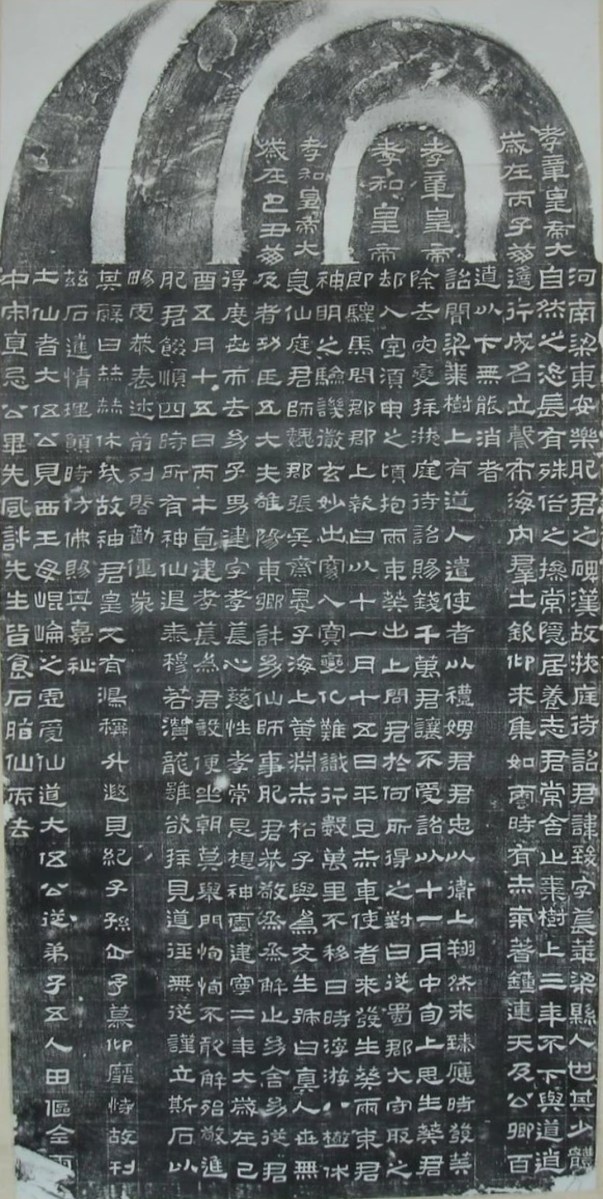 孝章皇帝
孝和皇帝
孝章皇帝大
歲在丙子薨
孝和皇帝大
歲在己丑薨
河南梁東安樂肥君之碑漢故掖庭待詔君諱致字萇華梁縣人也其少體
自然之恣長有殊俗之操常隱居養志君常舍止棗樹上三年不下與道逍
遙行成名立聲布海內羣士欽仰來集如雲時有赤氣著鍾連天及公卿百
遼以下無能消者
詔聞梁棗樹上有道人遣使者以禮娉君君忠以衛上翔然來臻應時發算
除去災變拜掖庭待詔賜錢千萬君讓不受詔以十一月中旬上思生葵君
却入室須臾之頃抱兩束葵出上問君於何所得之對曰從蜀郡大守取之
即驛馬問郡郡上報曰以十一月十五日平旦赤車使者來發生葵兩束君
神明之驗譏徹玄妙出窈入冥變化難識行數萬里不移日時浮游八極休
息仙庭君師魏郡張吳齋晏子海上黃淵赤松子與為友生號曰真人世無
及者功臣五大夫雒陽東鄉許幼仙師事肥君恭敬烝烝解止幼舍幼從君
得度世而去幼子男建字孝萇心慈性孝常思想神靈建寧二年大歲在己
酉五月十五日丙午直建孝萇為君設便坐朝莫舉門恂恂不敢解殆敬進
肥君餟順四時所有神仙退泰穆若潛龍雖欲拜見道徑無從謹立斯石以
暢虔恭表述前列啓勸僮蒙
其辭曰赫赫休哉故神君皇又有鴻稱升遐見紀子孫企予慕仰靡恃故刊
茲石達情理願時仿佛賜其嘉祉
土仙者大伍公見西王母崐崘之虛受仙道大伍公從弟子五人田傴全雨
中宋直忌公畢先風許先生皆食石脂仙而去